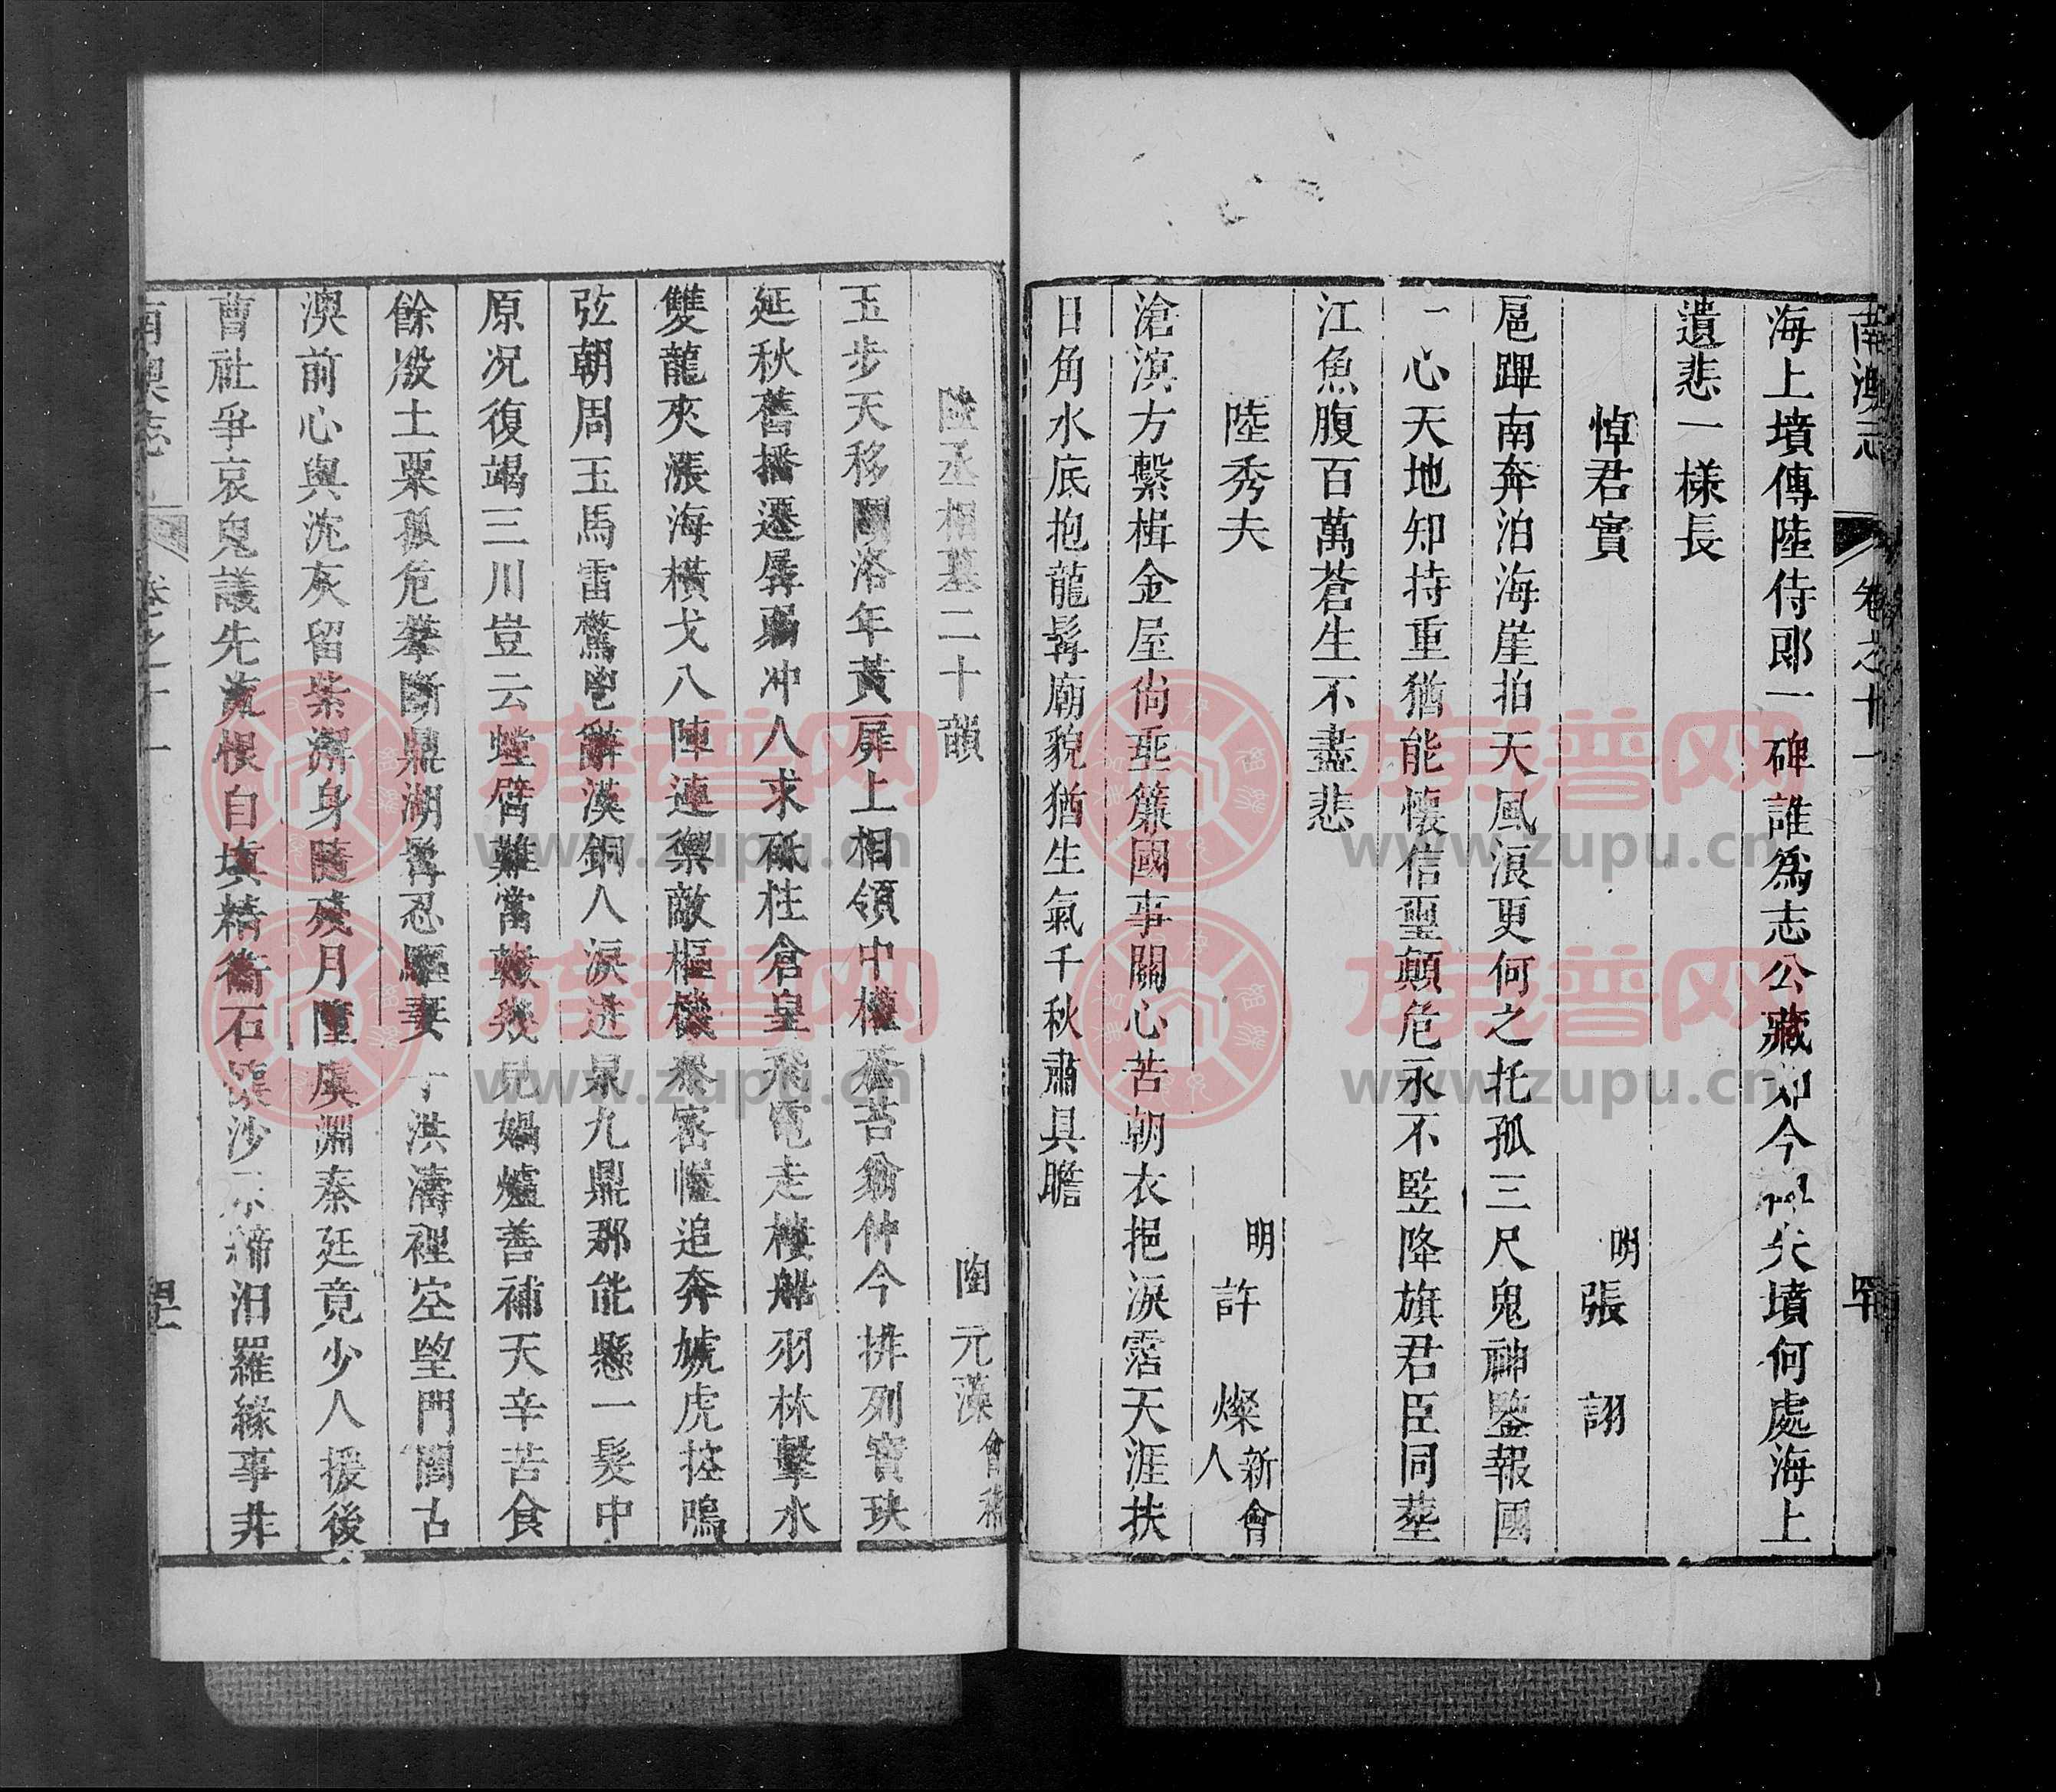 南澳志 卷之十一
海上墳傳陸侍郎一碑誰爲志公藏如今墳何處海上
遺悲一樣長
悼君實 明 張 詡
扈蹕南奔泊海崖拍天風浪更何之托孤三尺鬼神鑒報國
一心天地知持重猶能懷信璽顛危永不竪降旗君臣同塟
江魚腹百萬蒼生不盡悲
陸秀夫 明 許 燦 新會人
滄溟方繫楫金屋尚垂簾國事關心苦朝衣挹淚霑天涯扶
日角水底抱龍髯廟貌猶生氣千秋肅具瞻
陸丞相墓二十韻 陶元藻 會稽
玉步天移關洛年黃扉上相領中權苦爺仲今排列寶玦
延秋舊播遷孱弱冲人求砥柱倉皇飛電走樓船羽林擊水
雙龍夾漲海橫戈八陣連禦敵樞機黍密幄追奔虓虎控鳴
弦朝周玉馬雷驚鬯辭漢銅人淚迸泉九鼎那能懸一髮中
原况復竭三川豈云螳臂難當轍幾見媧爐善補天辛苦食
餘殷土粟孤危攀斷鼎湖髯忍驅妻子洪濤裡空望門閭古
澳前心與沈灰留柴澥身隨殘月墮虞淵秦廷竟少人援後
曹社爭哀鬼議先流恨自塡精衞石沙汨羅緣事非
南澳志 卷之十一